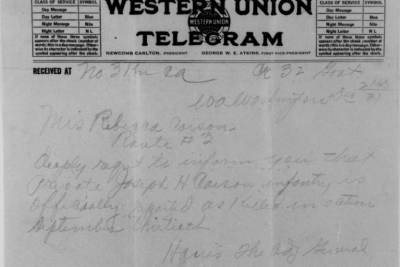 CLASS OF SERVICE SYMBOL
Day Message
Day Letter Blue
Night Message Nite
Night Letter N L
If none of these three symbols appears after the check (number of words) this is a day message. Otherwise its character is indicated by the symbol appearing after the check.
WESTERN UNION
WESTERN UNION
TELEGRAM
NEWCOMB CARLTON, PRESIDENT GEORGE W. E. ATKINS, FIRST VICE-PRESIDENT
CLASS OF SERVICE SYMBOL
Day Message
Day Letter Blue
Night Message Nite
Night Letter N L
If none of these three symbols appears after the check (number of words) this is a day message. Otherwise its character is indicated by the symbol appearing after the check.
RECEIVED AT
32 Govt
Washington
Mrs Rebecca
Route # 2
Deeply regret to inform you that
Private Joseph H infantry is
officially reported as killed in action
September thirtieth
Harris The Adj General